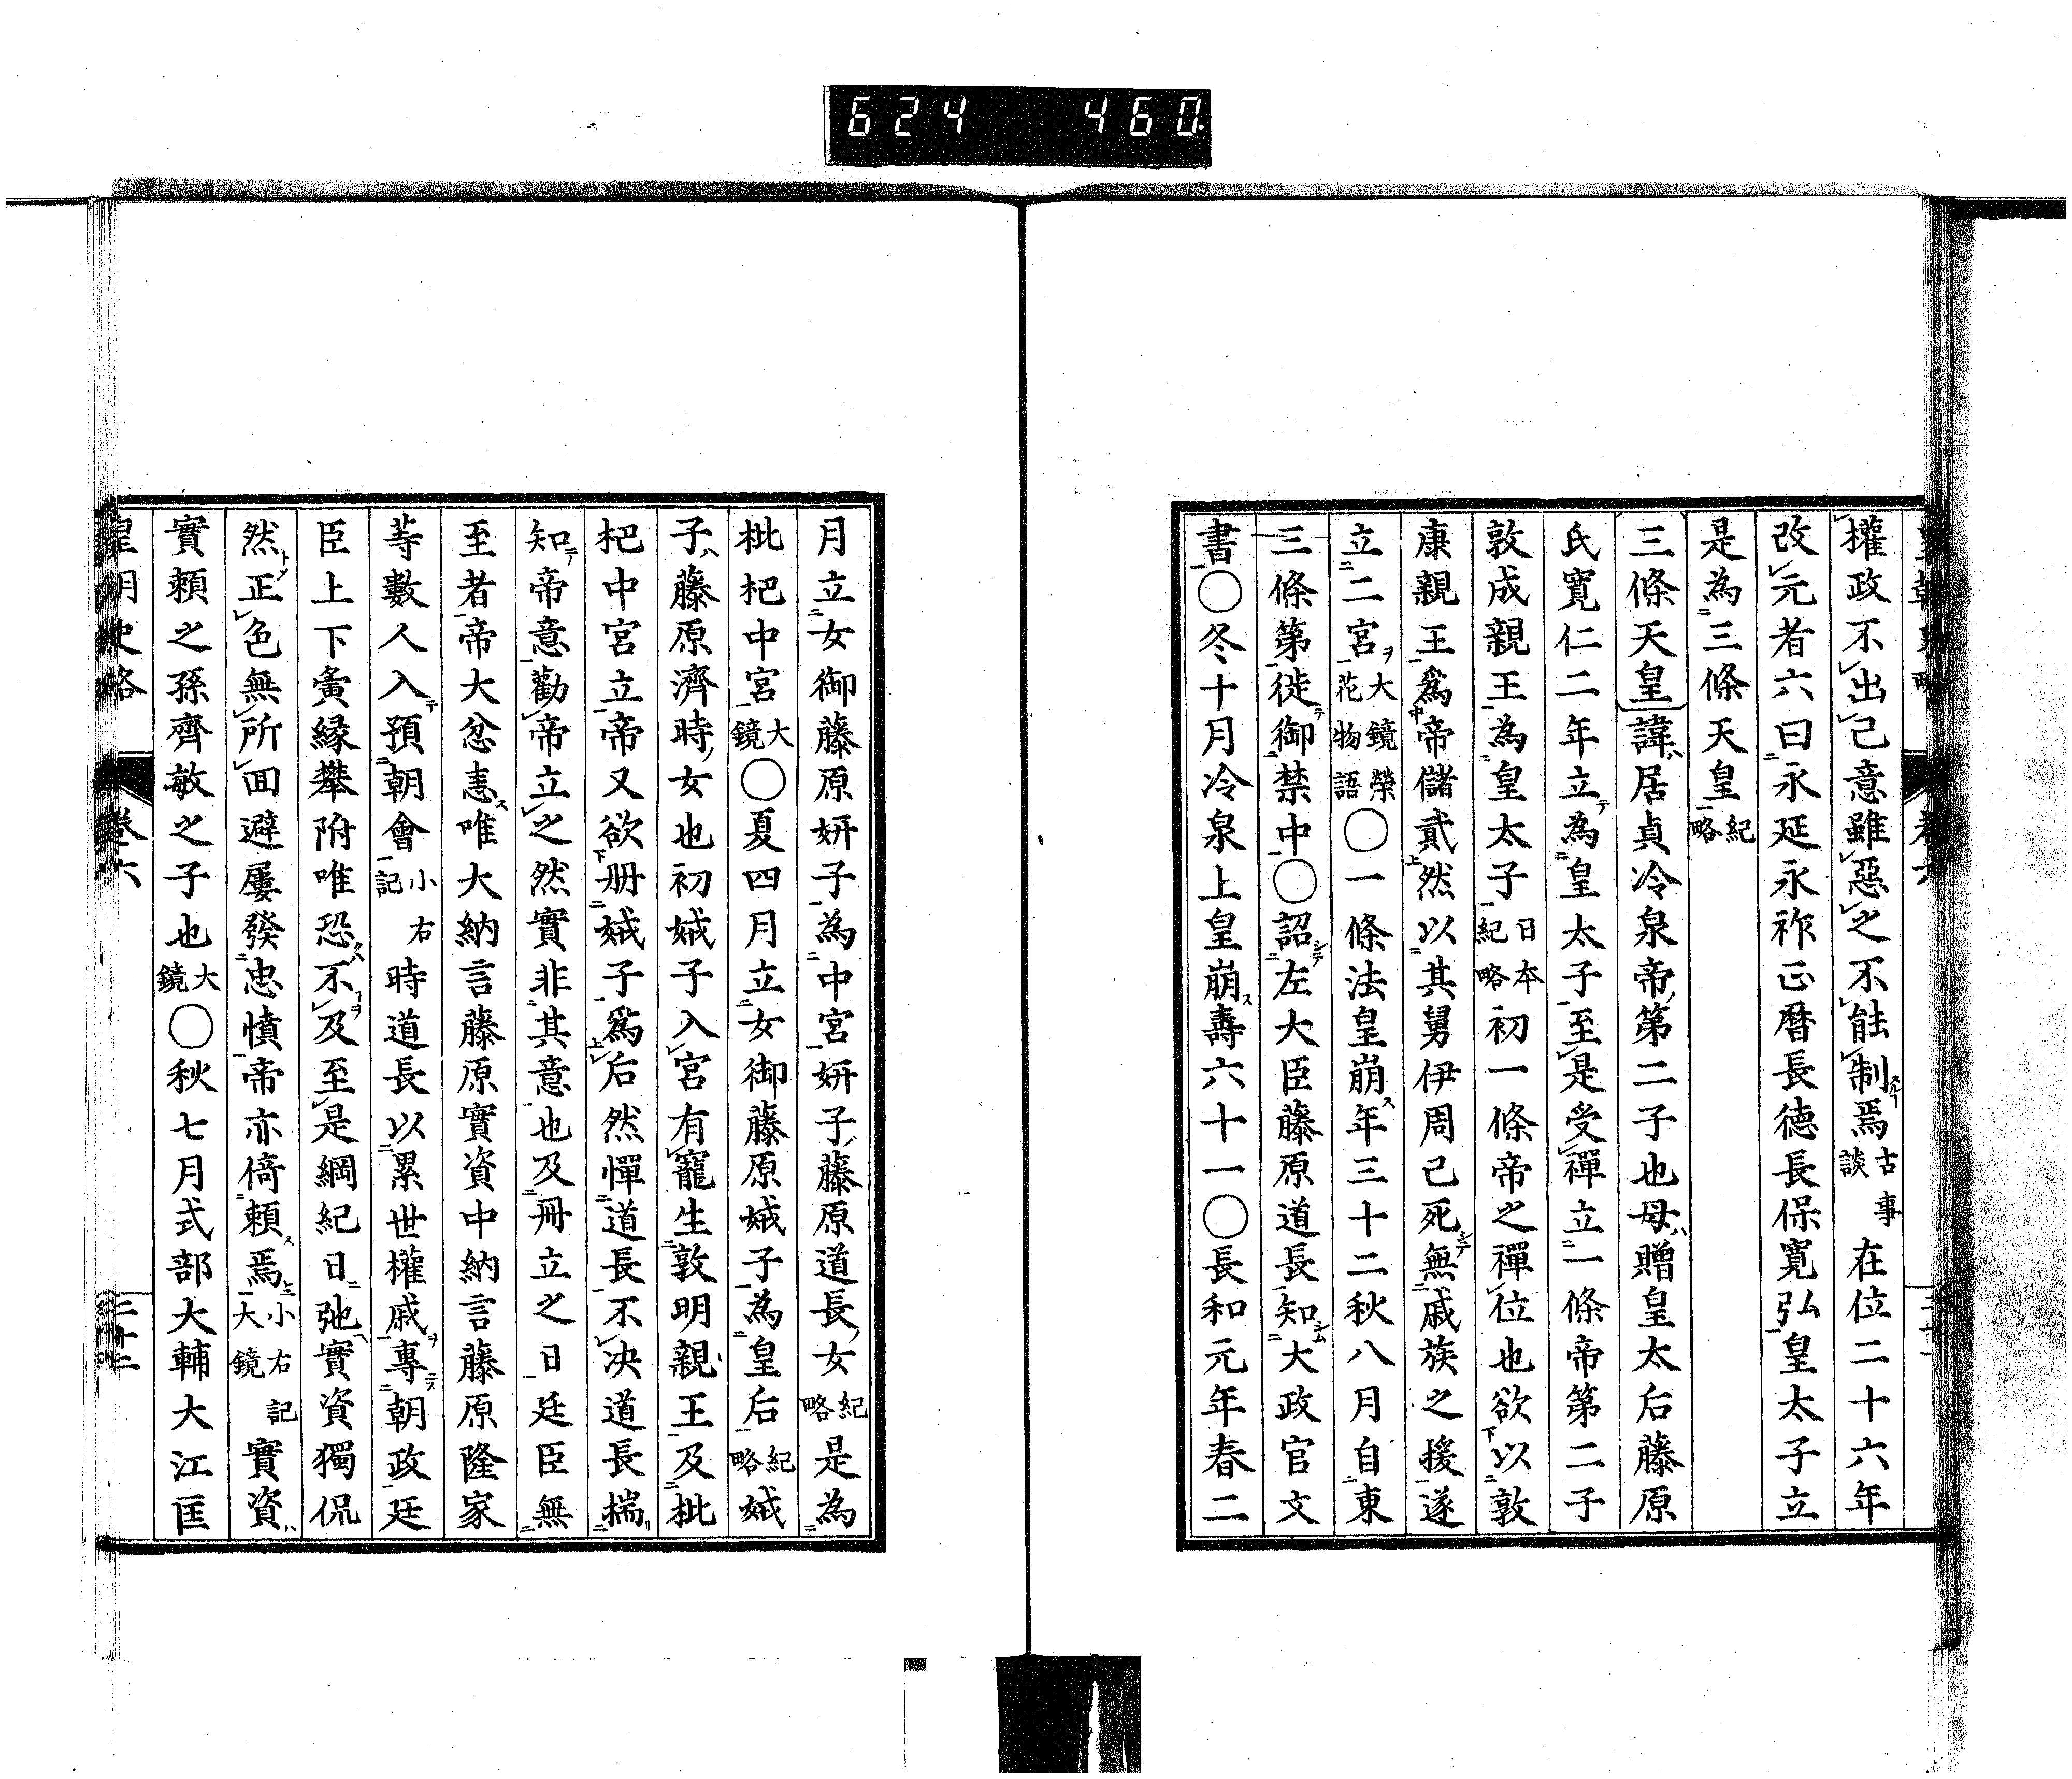 624 460
權政不出己意雖惡之不能制焉古事談在位二十六年
改元者六曰永延永祚正曆長德長保寬弘皇太子立
是為三條天皇紀略
三條天皇諱居貞冷泉帝第二子也母贈皇太后藤原
氏寬仁二年立為皇太子至是受禪立一條帝第二子
敦成親王為皇太子日本紀略初一條帝之禪位也欲以敦
康親王爲帝儲貳然以其舅伊周己死無戚族之援遂
立二宮大鏡榮花物語○一條法皇崩年三十二秋八月自東
三條第徙御禁中○詔左大臣藤原道長知大政官文
書○冬十月冷泉上皇崩壽六十一○長和元年春二
月立女御藤原妍子為中宮妍子藤原道長女紀略是為
枇杷中宮大鏡○夏四月立女御藤原娍子為皇后紀略娍
子藤原濟時女也初娍子入宮有寵生敦明親王及枇
杷中宮立帝又欲册娍子爲后然憚道長不决道長揣
知帝意勸帝立之然實非其意也及冊立之日廷臣無
至者帝大忿恚唯大納言藤原實資中納言藤原隆家
等數人入預朝會小右記時道長以累世權戚專朝政廷
臣上下夤緣攀附唯恐不及至是綱紀日弛實資獨侃
然正色無所回避屢發忠憤帝亦倚賴焉小右記大鏡實資
實賴之孫齊敏之子也大鏡○秋七月式部大輔大江匡
皇朝史略 卷六 二十二